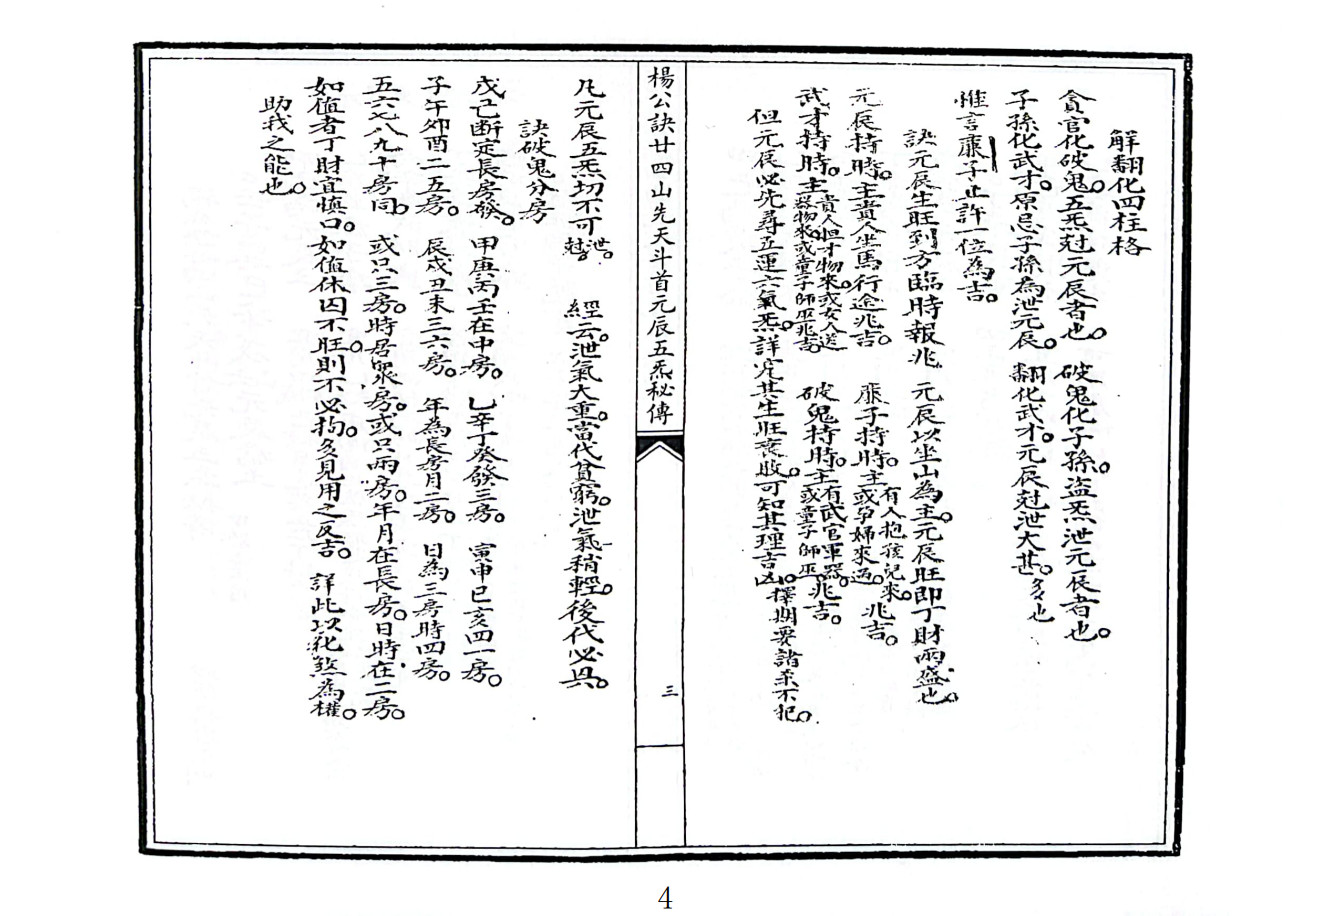 解翻化四柱格
貪官化破鬼。五炁尅元辰者也。 破鬼化子孫。盜炁泄元辰者也。
子孫化武才。原忌子孫為泄元辰。 翻化武才。元辰尅泄大甚。多也
惟言廉子止許一位為吉。
訣元辰生旺到方臨時報兆
元辰以坐山為主。元辰旺即丁財兩盛也。
元辰持時。主貴人坐馬行途兆吉。 廉子持時。主或孕婦來過。有人抱孩兒來。兆吉。
武才持時。主貴人但才物來。或女人送器物來。或童子師巫兆吉。 破鬼持時。主有武官軍器。或童子師巫。兆吉。
但元辰必先尋五運六氣炁。詳定其生旺衰敗。可知其理吉凶。擇期要諸系不犯。
楊公訣廿四山先天斗首元辰五炁秘傳
三
凡元辰五炁切不可泄。尅。 經云。泄氣大重。當代貧窮。泄氣稍輕。後代必興。
訣破鬼分房
戊己断定長房發。 甲庚丙壬在中房。 乙辛丁癸發三房。 寅申巳亥四一房。
子午卯酉二五房。 辰戍丑未三六房。 年為長房月二房。 日為三房時四房。
五六七八九十房同。 或只三房。時居眾房。或只兩房。年月在長房。日時在二房。
如值者丁財宜慎口。如值休囚不旺。則不必拘。多見用之反吉。 詳此以化煞為權。
助我之能也。
4